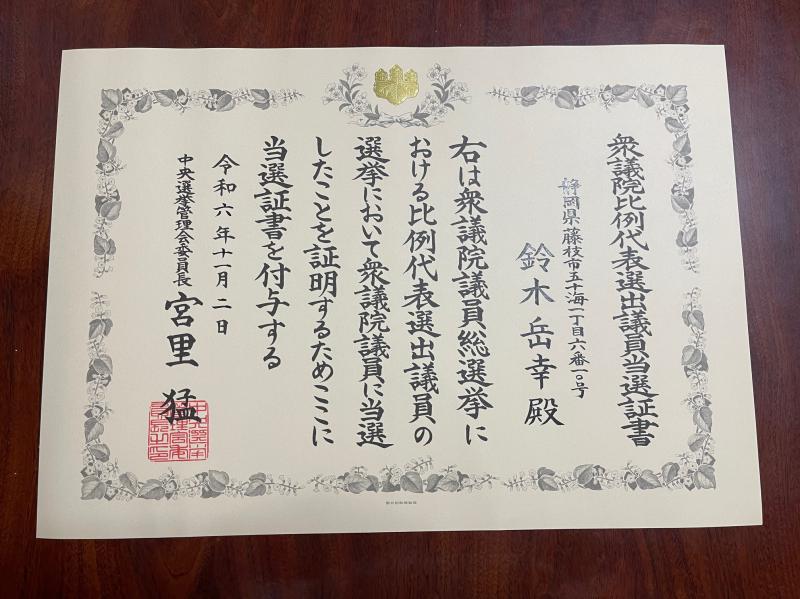 衆議院比例代表選出議員当選証書
静岡県藤枝市五十海一丁目六番一〇号
鈴木岳幸殿
右は衆議院議員総選挙に
おける比例代表選出議員の
選挙において衆議院議員に当選
したことを証明するためここに
当選証書を付与する
令和六年十一月二日
中央選挙管理会委員長 宮里猛